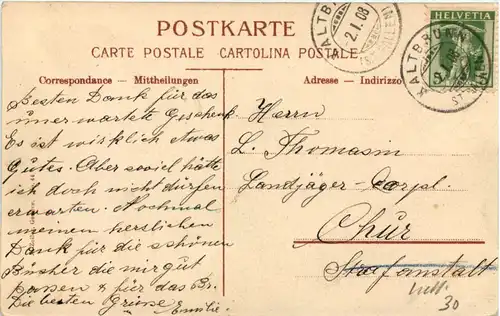 POSTKARTE
CARTE POSTALE CARTOLINA POSTALE
Correspondance - Mittheilungen
Adresse - Indirizzo
KALTBRUNN
2.I.08
(ST. GALLEN)
HELVETIA
KALTBRUNN
Besten Dank für das
unerwartete Geschenk
Es ist wirklich etwas
Gutes. Aber soviel hätte
ich doch nicht dürfen
erwarten. Nochmal
meinen herzlichen
Dank für die schönen
Bücher die mir gut
passen & für das Bs.
Die besten Grüsse Emilie.
Herrn
L. Thomasin
Landjäger-Corpl.
Chur
Strafanstalt
30